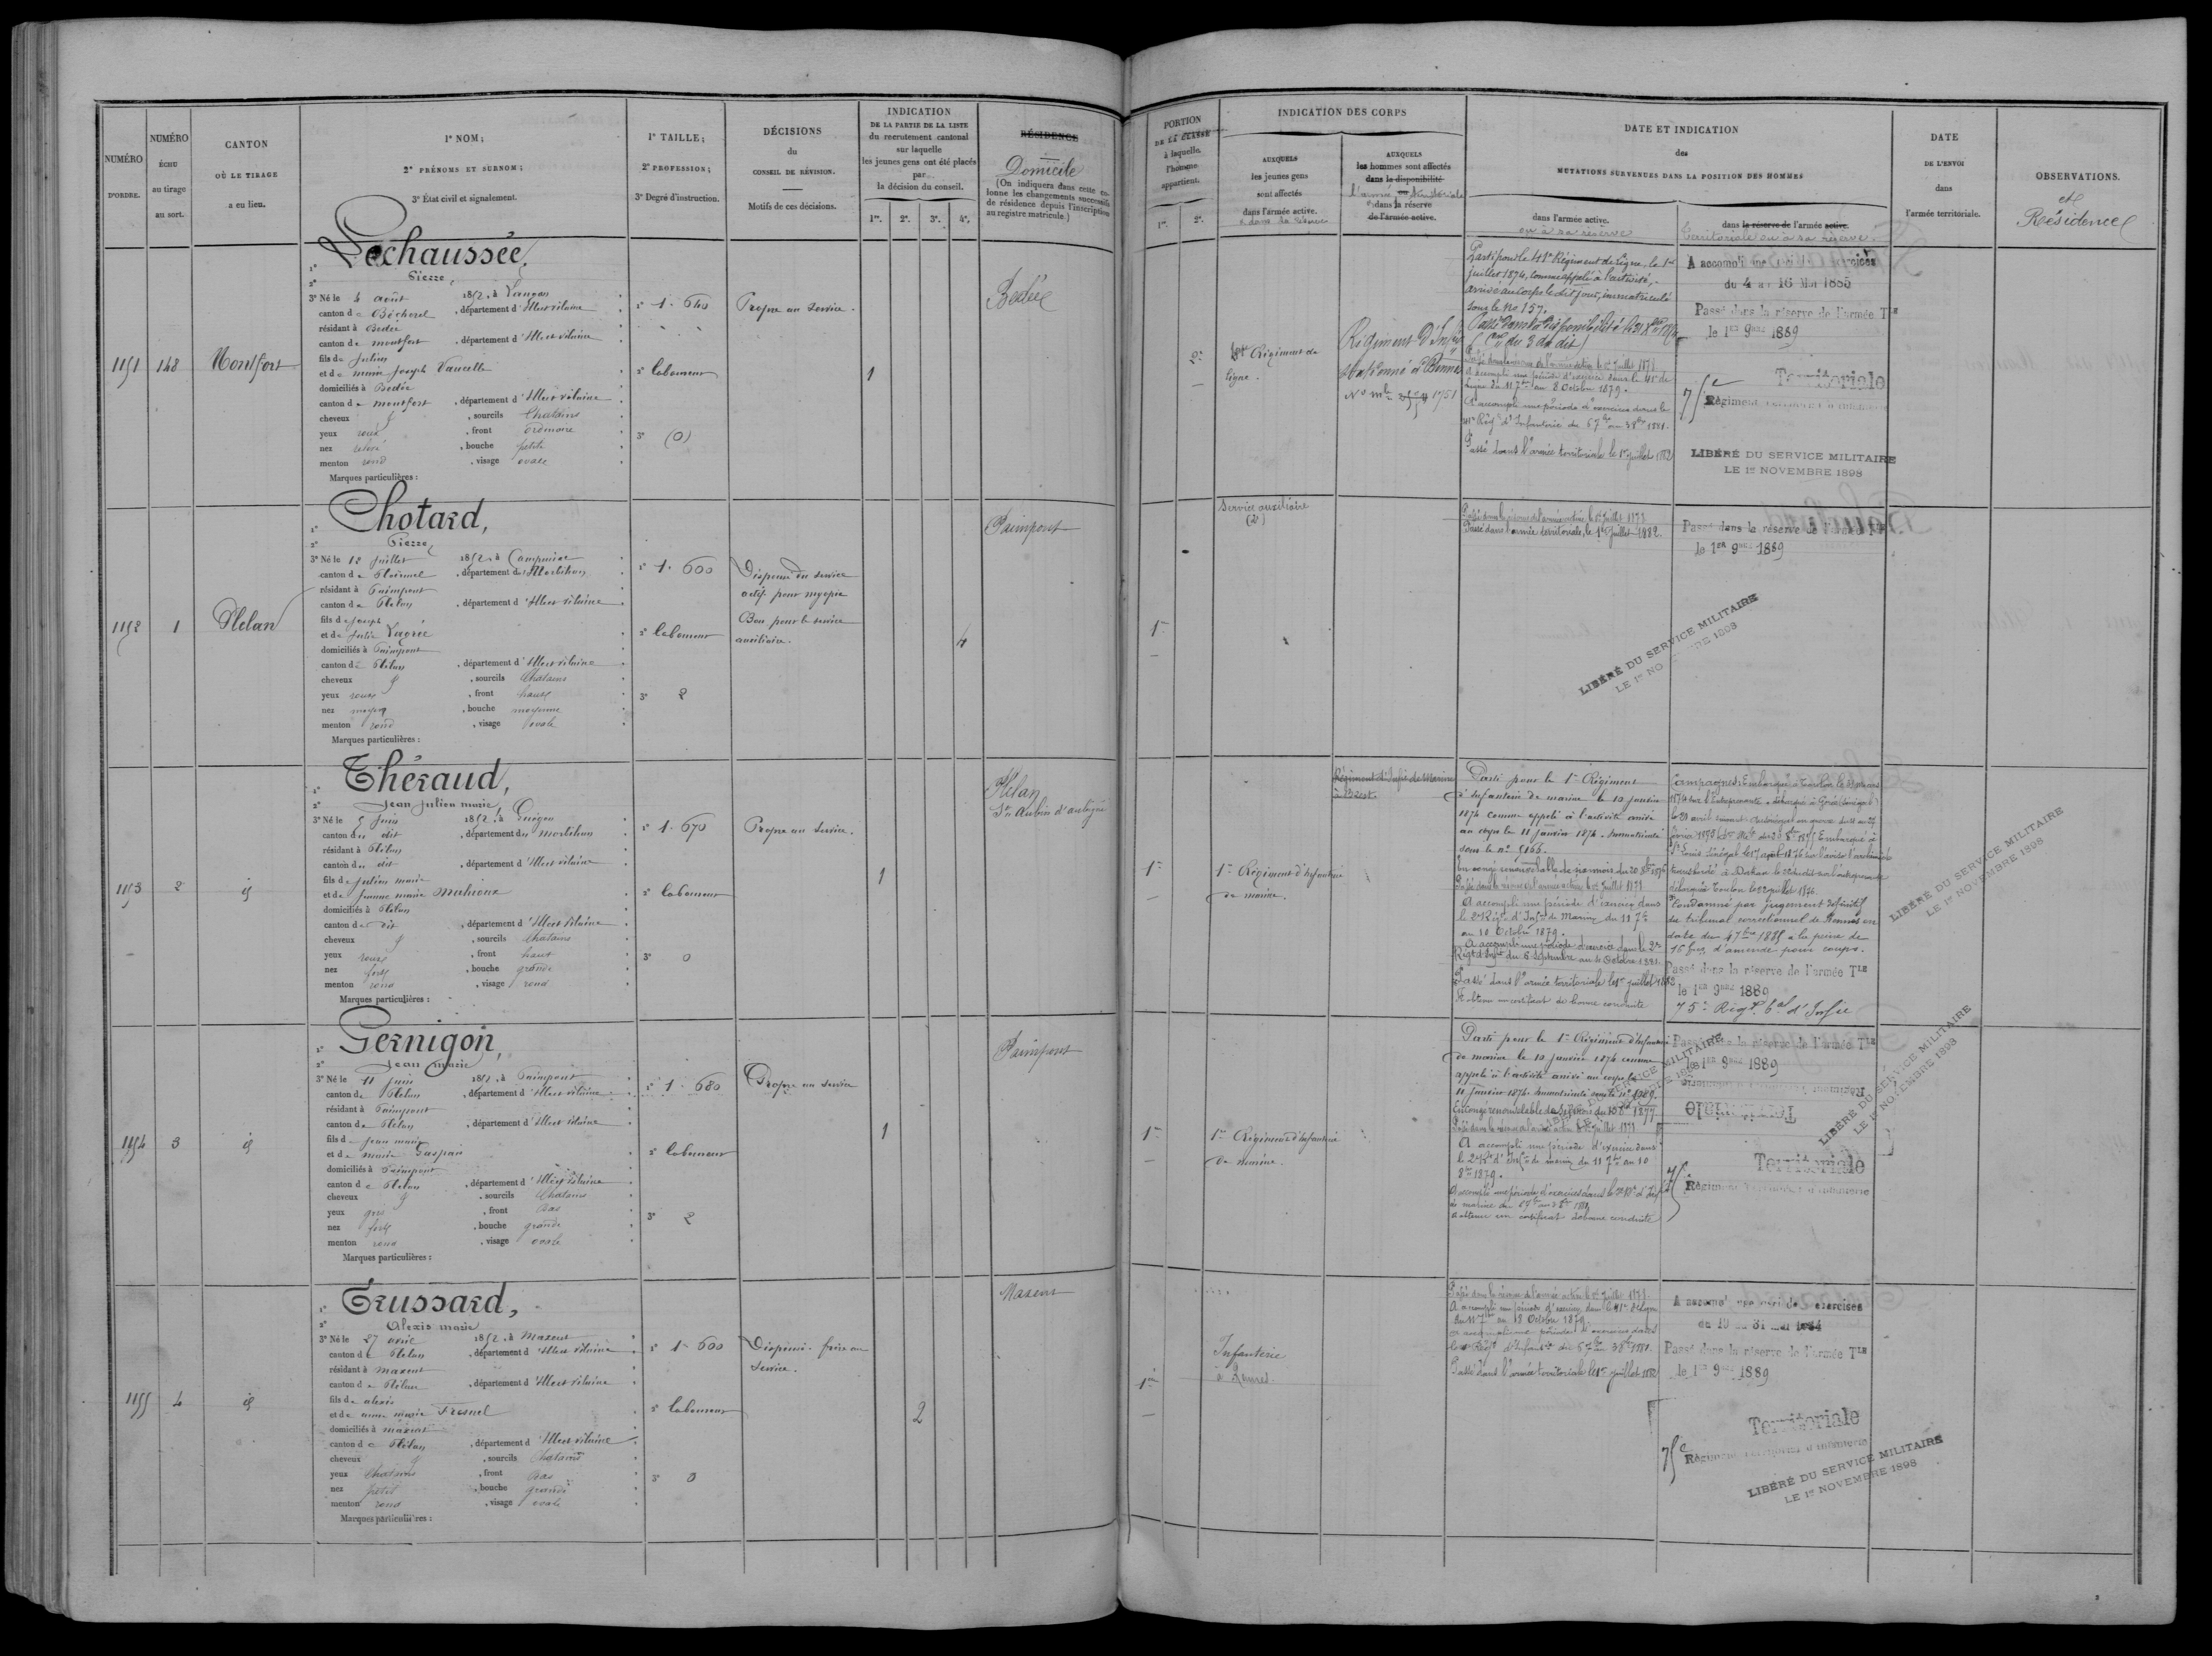 NUMÉRO
D'ORDRE.
NUMÉRO
ÉCHU
au tirage
au sort.
CANTON
OÙ LE TIRAGE
a eu lieu.
1° NOM;
2° PRÉNOMS ET SURNOM;
3° État civil et signalement.
1° TAILLE;
2° PROFESSION;
3° Degré d'instruction.
DÉCISIONS
du
CONSEIL DE RÉVISION.
Motifs de ces décisions.
INDICATION
DE LA PARTIE DE LA LISTE
du recrutement cantonal
sur laquelle
les jeunes gens ont été placés
par
la décision du conseil.
1re. 2e. 3e. 4e.
RÉSIDENCE
Domicile
(On indiquera dans cette co-
lonne les changements successifs
de résidence depuis l'inscription
au registre matricule.)
PORTION
DE LA CLASSE
à laquelle
l'homme
appartient.
1re. 2e.
INDICATION DES CORPS
AUXQUELS
les jeunes gens
sont affectés
dans l'armée active.
& dans la réserve
AUXQUELS
les hommes sont affectés
dans la disponibilité
ou
l'armée territoriale
& dans la réserve
de l'armée active.
DATE ET INDICATION
des
MUTATIONS SURVENUES DANS LA POSITION DES HOMMES
dans l'armée active.
ou à sa réserve
dans la réserve de l'armée active.
Territoriale ou à sa réserve.
DATE
DE L'ENVOI
dans
l'armée territoriale.
OBSERVATIONS.
et
Résidence
1151 148 Montfort
Lechaussée,
Pierre,
3° Né le 4 août 1852, à Langan
canton de Bécherel, département d'Ille et vilaine
résidant à Bedée
canton de montfort, département d'Ille et vilaine
fils de Julien
et de marie Joseph Vaucelle
domiciliés à Bedée
canton de montfort, département d'Ille et vilaine
cheveux, sourcils Chatains
yeux roux, front ordinaire
nez relevé, bouche petite
menton rond, visage ovale
Marques particulières :
1° 1. 640
2° laboureur
3° (0)
Propre au service.
1
Bedée
2e
Régiment de
ligne.
Régiment d'Infie
stationné à Rennes
1751
Parti pour le 41e Régiment de ligne, le 1er
juillet 1874, comme appelé à l'activité,
arrivé au corps le dit jour, immatriculé
sous le No 157.
Passé dans la réserve de l'armée active le 1er Juillet 1878
A accompli une période d'exercice dans le 41e de
ligne du 11 7bre au 8 Octobre 1879.
A accompli une période d'exercices dans le
41e Régt d'Infanterie du 5 7bre au 3 8bre 1881.
Passé dans l'armée territoriale le 1er juillet 1882
A accompli une exercices
du 4 au 16 Mai 1885
Passé dans la réserve de l'armée TLE
le 1ER 9BRE 1889
75e Territoriale
Régiment territorial d'infanterie
LIBÉRÉ DU SERVICE MILITAIRE
LE 1er NOVEMBRE 1898
1152 1 Plelan
Chotard,
Pierre,
3° Né le 12 Juillet 1852, à Campénéac
canton de Ploërmel, département du Morbihan
résidant à Paimpont
canton de Plélan, département d'Ille et vilaine
fils de Joseph
et de Julie Lagrée
domiciliés à Paimpont
canton de Plélan, département d'Ille et vilaine
cheveux, sourcils Chatains
yeux roux, front haut
nez moyen, bouche moyenne
menton rond, visage ovale
Marques particulières :
1° 1. 600
2° laboureur
3° 2
Dispensé du service
actif pour myopie
Bon pour le service
auxiliaire.
4
Paimpont
1re
Service auxiliaire
Passé dans la réserve de l'armée active le 1er Juillet 1878
Passé dans l'armée territoriale, le 1er Juillet 1882.
Passé dans la réserve de l'armée TLE
le 1ER 9BRE 1889
LIBÉRÉ DU SERVICE MILITAIRE
LE 1er NOVEMBRE 1898
1153 2 id
Théraud,
Jean Julien marie,
3° Né le 5 Juin 1852, à Guégon
canton du dit, département du morbihan
résidant à Plélan
canton du dit, département d'Ille et vilaine
fils de Julien marie
et de Jeanne marie Mahieux
domiciliés à Plélan
canton du dit, département d'Ille et vilaine
cheveux, sourcils Chatains
yeux roux, front haut
nez fort, bouche grande
menton rond, visage rond
Marques particulières :
1° 1. 670
2° laboureur
3° 0
Propre au service.
1
Plélan
St Aubin d'aubigné
1re
1er Régiment d'infanterie
de marine.
Régiment d'Infie de Marine
à Brest.
Parti pour le 1er Régiment
d'infanterie de marine le 10 janvier
1874 comme appelé à l'activité arrivé
au corps le 11 janvier 1874. Immatriculé
sous le n° 5166.
En congé renouvelable de six mois du 20 8bre 1876
Passé dans la réserve de l'armée active le 1er Juillet 1878
A accompli une période d'exercice dans
le 2e Régt d'Infie de Marine du 11 7bre
au 10 Octobre 1879.
A accompli une période d'exercices dans le 2e
Régt d'Infie du 6 Septembre au 4 Octobre 1881.
Passé dans l'armée territoriale le 1er juillet 1882
A obtenu un certificat de bonne conduite
Condamné par jugement définitif
du tribunal correctionnel de Rennes en
date du 4 7bre 1885 à la peine de
16 fres d'amende pour coups.
Passé dans la réserve de l'armée TLE
le 1ER 9BRE 1889
75e Régt tal d'Infie
LIBÉRÉ DU SERVICE MILITAIRE
LE 1er NOVEMBRE 1898
1154 3 id
Gernigon,
Jean marie
3° Né le 11 Juin 1852, à Paimpont
canton de Plélan, département d'Ille et vilaine
résidant à Paimpont
canton de Plélan, département d'Ille et vilaine
fils de Jean marie
et de marie Gaspais
domiciliés à Paimpont
canton de Plélan, département d'Ille et vilaine
cheveux, sourcils Chatains
yeux gris, front bas
nez fort, bouche grande
menton rond, visage ovale
Marques particulières :
1° 1. 680
2° laboureur
3° 2
Propre au service
1
Paimpont
1re
1er Régiment d'infanterie
de marine.
Parti pour le 1er Régiment d'infanterie
de marine le 10 janvier 1874 comme
appelé à l'activité arrivé au corps le
11 janvier 1874. Immatriculé sous le n°
Passé dans la réserve de l'armée active le 1er Juillet 1878
A accompli une période d'exercice dans
le 2e Rt d'Infie de marine du 11 7bre au 10
8bre 1879.
A accompli une période d'exercices dans le 2e Rt d'Infie
de marine
A obtenu un certificat de bonne conduite
Passé dans la réserve de l'armée TLE
le 1ER 9BRE 1889
Territoriale
75e Territoriale
Régiment territorial d'infanterie
LIBÉRÉ DU SERVICE MILITAIRE
LE 1er NOVEMBRE 1898
1155 4 id
Trussard,
Alexis marie
3° Né le 27 avril 1852, à Maxent
canton de Plélan, département d'Ille et vilaine
résidant à maxent
canton de Plélan, département d'Ille et vilaine
fils de alexis
et de anne marie Fresnel
domiciliés à maxent
canton de Plélan, département d'Ille et vilaine
cheveux, sourcils Chatains
yeux Chatains, front bas
nez petit, bouche grande
menton rond, visage ovale
Marques particulières :
1° 1. 600
2° laboureur
3° 0
Dispensé. frère au
service.
2
Maxent
1re
Infanterie
à Rennes
Passé dans la réserve de l'armée active le 1er Juillet 1878.
A accompli une période d'exercice dans le 41e de ligne
du 11 7bre au 8 Octobre 1879.
Passé dans l'armée territoriale le 1er juillet 1882
A accompli une période exercices
du 19 au 31 mai 1884
Passé dans la réserve de l'armée TLE
le 1ER 9BRE 1889
75e Territoriale
Régiment territorial d'infanterie
LIBÉRÉ DU SERVICE MILITAIRE
LE 1er NOVEMBRE 1898